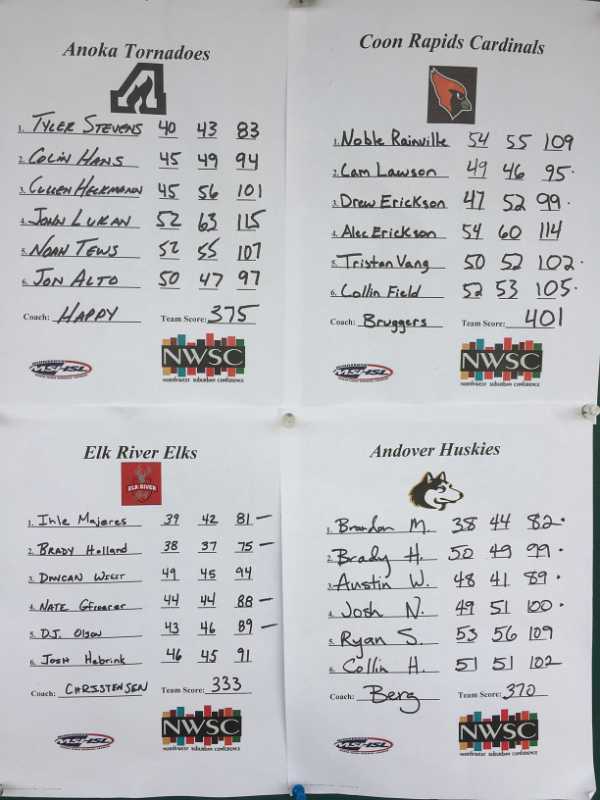 Anoka Tornadoes
1. TYLER STEVENS 40 43 83
2. COLIN HANS 45 49 94
3. CULLEN HECKMANN 45 56 101
4. JOHN LUKAN 52 63 115
5. NOAH TEWS 52 55 107
6. JON ALTO 50 47 97
Coach: HAPPY Team Score: 375
MSHSL
NWSC
northwest suburban conference
Coon Rapids Cardinals
1. Noble Rainville 54 55 109
2. Cam Lawson 49 46 95.
3. Drew Erickson 47 52 99.
4. Alec Erickson 54 60 114
5. Tristan Vang 50 52 102.
6. Collin Field 52 53 105.
Coach: Bruggers Team Score: 401
MSHSL
NWSC
northwest suburban conference
Elk River Elks
ELK RIVER
1. Ihle Majeres 39 42 81 -
2. BRADY Holland 38 37 75 -
3. DUNCAN 49 45 94
4. NATE 44 44 88 -
5. D.J. Olson 43 46 89 -
6. JOSH Hebrink 46 45 91
Coach: CHRISTENSEN Team Score: 333
MSHSL
NWSC
northwest suburban conference
Andover Huskies
1. Brandon M. 38 44 82.
2. Brady H. 50 49 99.
3. Austin W. 48 41 89.
4. Josh N. 49 51 100.
5. Ryan S. 53 56 109
6. Collin H. 51 51 102
Coach: Berg Team Score: 370
MSHSL
NWSC
northwest suburban conference